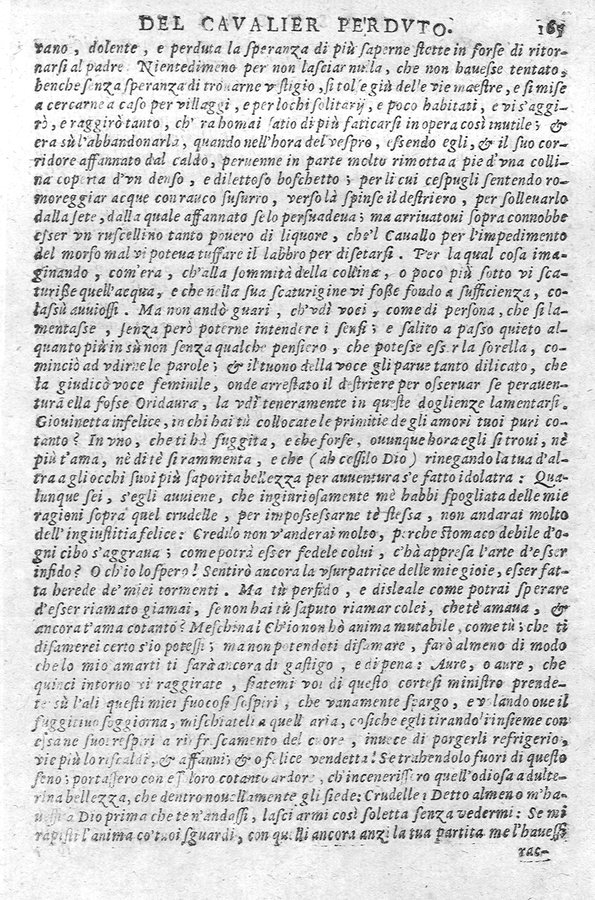 DEL CAVALIER PERDVTO. 165
rano, dolente, e perduta la speranza di più saperne stette in forse di ritor-
narsi al padre. Nientedimeno per non lasciar nulla, che non hauesse tentato,
benche senza speranza di trouarne vestigio, si tolse giù delle vie maestre, e si mise
a cercarne a caso per villaggi, e per lochi solitarij, e poco habitati, e vi s'aggi-
rò, e raggirò tanto, ch'era homai satio di più faticarsi in opera così inutile; &
era sù l'abbandonarla, quando nell'hora del vespro, essendo egli, & il suo cor-
ridore affannato dal caldo, peruenne in parte molto rimotta a pie d'vna colli-
na coperta d'vn denso, e dilettoso boschetto; per li cui cespugli sentendo ro-
moreggiar acque con rauco susurro, verso là spinse il destriero, per solleuarlo
dalla sete, dalla quale affannato se lo persuadeua; ma arriuatoui sopra connobbe
esser vn ruscellino tanto pouero di liquore, che'l Cauallo per l'impedimento
del morso mal vi poteua tuffare il labbro per disetarsi. Per la qual cosa ima-
ginando, com'era, ch'alla sommità della collina, o poco più sotto vi sca-
turisse quell'acqua, e che nella sua scaturigine vi fosse fondo a sufficienza, co-
lassù auuiossi. Ma non andò guari, ch'vdì voci, come di persona, che si la-
mentasse, senza però poterne intendere i sensi; e salito a passo quieto al-
quanto più in sù non senza qualche pensiero, che potesse esser la sorella, co-
minciò ad vdirne le parole; & il tuono della voce gli parue tanto dilicato, che
la giudicò voce feminile, onde arrestato il destriere per osseruar se perauen-
tura ella fosse Oridaura, la vdì teneramente in queste doglienze lamentarsi.
Giouinetta infelice, in chi hai tù collocate le primitie degli amori tuoi puri co-
tanto? In vno, che ti hà fuggita, e che forse, ouunque hora egli si troui, nè
più t'ama, nè di tè si rammenta, e che (ah cessilo Dio) rinegando la tua d'al-
tra a gli occhi suoi più saporita bellezza per auuentura s'e fatto idolatra: Qua-
lunque sei, s'egli auuiene, che ingiuriosamente mè habbi spogliata delle mie
ragioni sopra quel crudelle, per impossessarne tè stessa, non andarai molto
dell'ingiustitia felice: Credilo non v'anderai molto, perche stomaco debile d'o-
gni cibo s'aggraua; come potrà esser fedele colui, c'hà appresa l'arte d'esser
infido? O ch'io lo spero! Sentirò ancora la vsurpatrice delle mie gioie, esser fat-
ta herede de' miei tormenti. Ma tù perfido, e disleale come potrai sperare
d'esser riamato giamai, se non hai tù saputo riamar colei, che tè amaua, &
ancora t'ama cotanto? Meschina! Ch'io non hò anima mutabile, come tù; che ti
disamerei certo s'io potessi; ma non potendoti disamare, farò almeno di modo
che lo mio amarti ti sarà ancora di gastigo, e di pena: Aure, o aure, che
quinci intorno vi raggirate, siatemi voi di questo cortesi ministre prende-
te sù l'ali questi miei fuocosi sospiri, che vanamente spargo, e volando oue il
fuggitiuo soggiorna, mischiateli a quell'aria, cosiche egli tirando l'insieme con
essa ne suoi respiri a rinfrescamento del cuore, inuece di porgerli refrigerio,
vie più lo riscaldi, & affanni; & o felice vendetta! Se trahendolo fuori di questo
seno; portassero con essi loro cotanto ardore, ch'incenerissero quell'odiosa adulte-
rina bellezza, che dentro nouellamente gli siede: Crudelle! Detto almeno m'ha-
uessi a Dio prima che te n'andassi, lasciarmi così soletta senza vedermi: Se mi
rapisti l'anima co' tuoi sguardi, con quelli ancora anzi la tua partita me l'hauessi
rac-